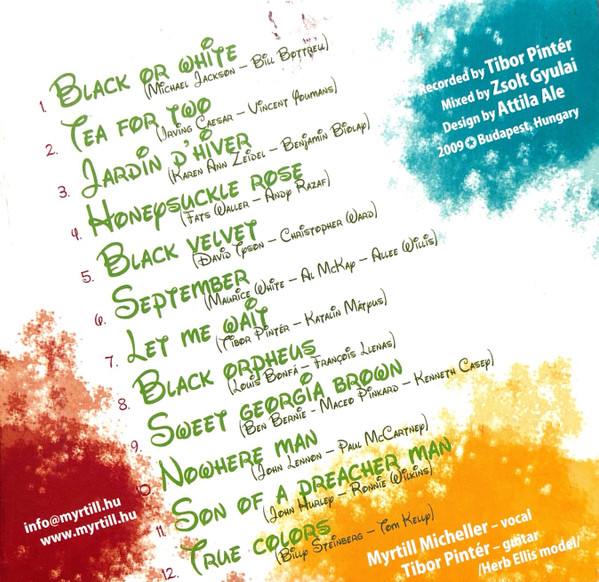 1. Black or white
(Michael Jackson – Bill Bottrell)
2. Tea for two
(Irving Caesar – Vincent Youmans)
3. Jardin d'hiver
(Karen Ann Zeidel – Benjamin Biolay)
4. Honeysuckle rose
(Fats Waller – Andy Razaf)
5. Black velvet
(David Tyson – Christopher Ward)
6. September
(Maurice White – Al McKay – Allee Willis)
7. Let me wait
(Tibor Pintér – Katalin Mátyus)
8. Black orpheus
(Louis Bonfá – François Llenas)
9. Sweet georgia brown
(Ben Bernie – Maceo Pinkard – Kenneth Casey)
10. Nowhere man
(John Lennon – Paul McCartney)
11. Son of a preacher man
(John Hurley – Ronnie Wilkins)
12. True colors
(Billy Steinberg – Tom Kelly)
Recorded by Tibor Pintér
Mixed by Zsolt Gyulai
Design by Attila Ale
2009 Budapest, Hungary
info@myrtill.hu
www.myrtill.hu
Myrtill Micheller – vocal
Tibor Pintér – guitar
/Herb Ellis model/